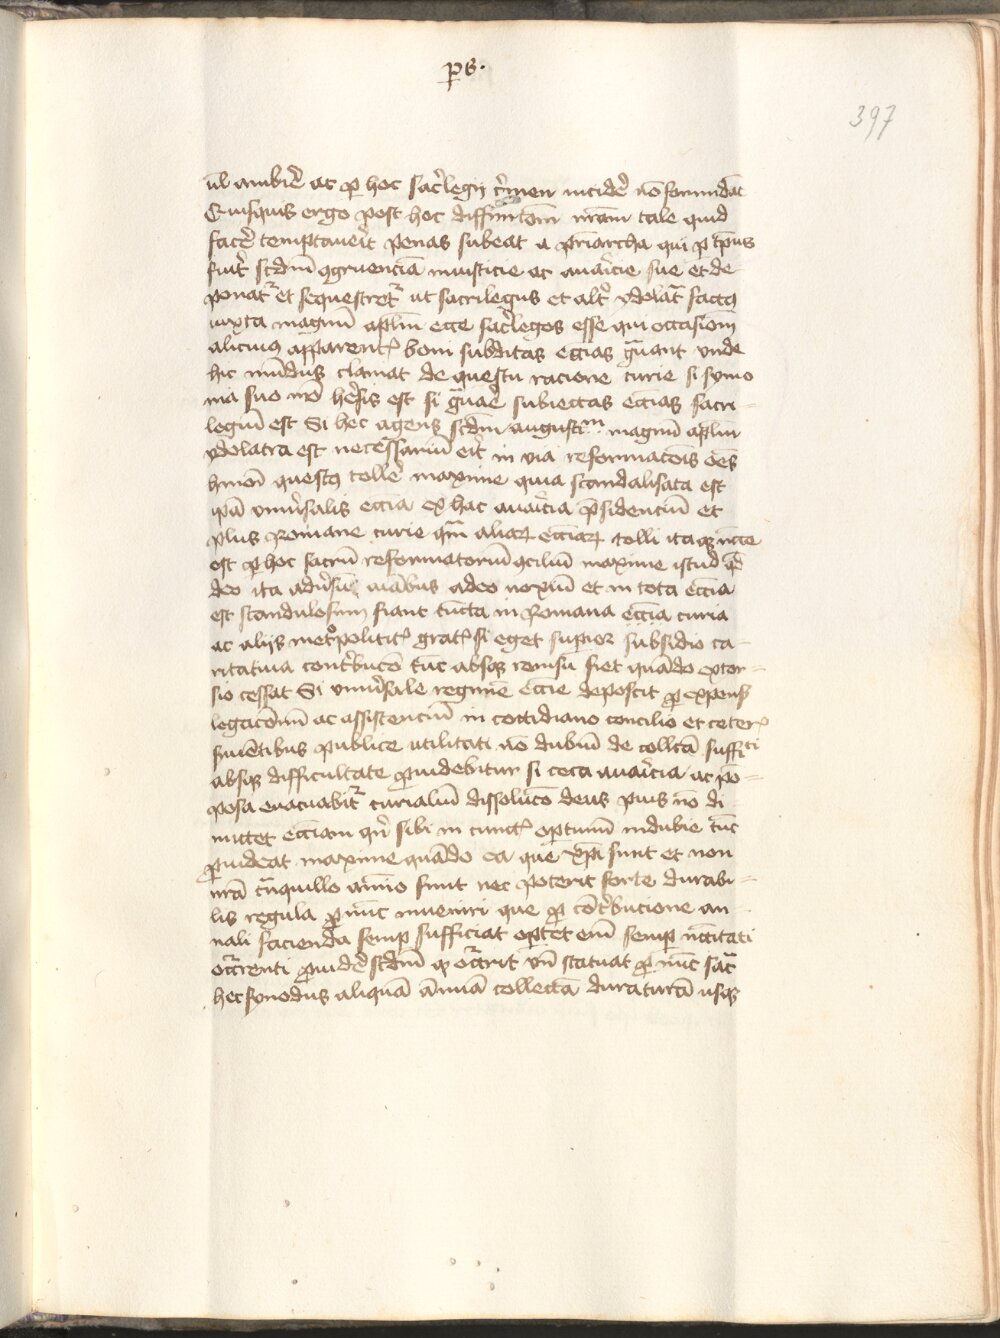 ps.
397
ul ambire ac p hoc sacrilegij crimen incidere no formidat
Quisquis ergo post hoc diffinitom nram tale quid
facere temptaverit penas subeat a priarcha qui p tpus
fuerit scdm ogruencia iniusticie ac avaricie sue et de-
ponatr et sequestretr ut sacrilegus et altr ydolatra factus
iuxta magnu aplm ecce sacrilegos esse qui occasiom
alicuius apparentis boni subditas eccias gravant unde
hic mudus clamat de questu racione curie si symo
nia suo no heresis est si gravare subiectas eccias sacri-
legiu est Si hec agens scdm augustinu magnu aplm
ydolatra est necessariu erit in via reformatois oes
hmoi questus tollere maxime quia scandalisata est
ipa univsalis eccia ex hac avaricia psidenciu et
plus Romane curie qm aliar ecciar tolli itaq ncce
est p hoc sacru reformatoriu gciliu maxime istud qd
deo ita adversu aiabus adeo noxiu et in tota eccia
est scandulosum fiant cuncta in Romana eccia curia
ac alijs metropoliticis gratis si eget superior subsidio ca-
ritativa contribucoe tuc absq censu fiet quado extor-
sio cessat Si universale regimen eccie deposcit p expens
legacionu ac assistenciu in cottidiano concilio et ceteris
servientibus publice utilitati no dubiu de collcta sufficienti
absq difficultate providebitur si ceca avaricia ac po-
posa evacuabitr curialiu dissoluco deus pius no di-
mittet ecciam qn sibi in cunctis optimu indubie tuc
provideat maxime quado ea que xpi sunt et non
nra tranquillo animo sunt nec poterit forte durabi-
lis regula p nuc inveniri que p contribucione an-
nali facienda semp sufficiat optet eni semp nccitati
occurrenti providere scdm q occurrit vn statuat p nuc sacra
hec synodus aliqua annua collecta duratura usq